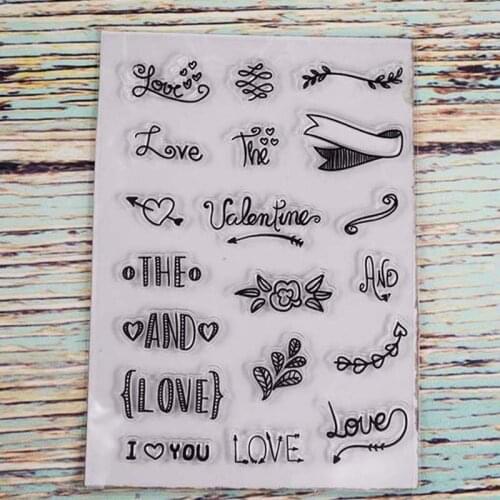 Love
Love
The
Valentine
THE
AND
AND
{LOVE}
Love
I ♥ YOU
LOVE